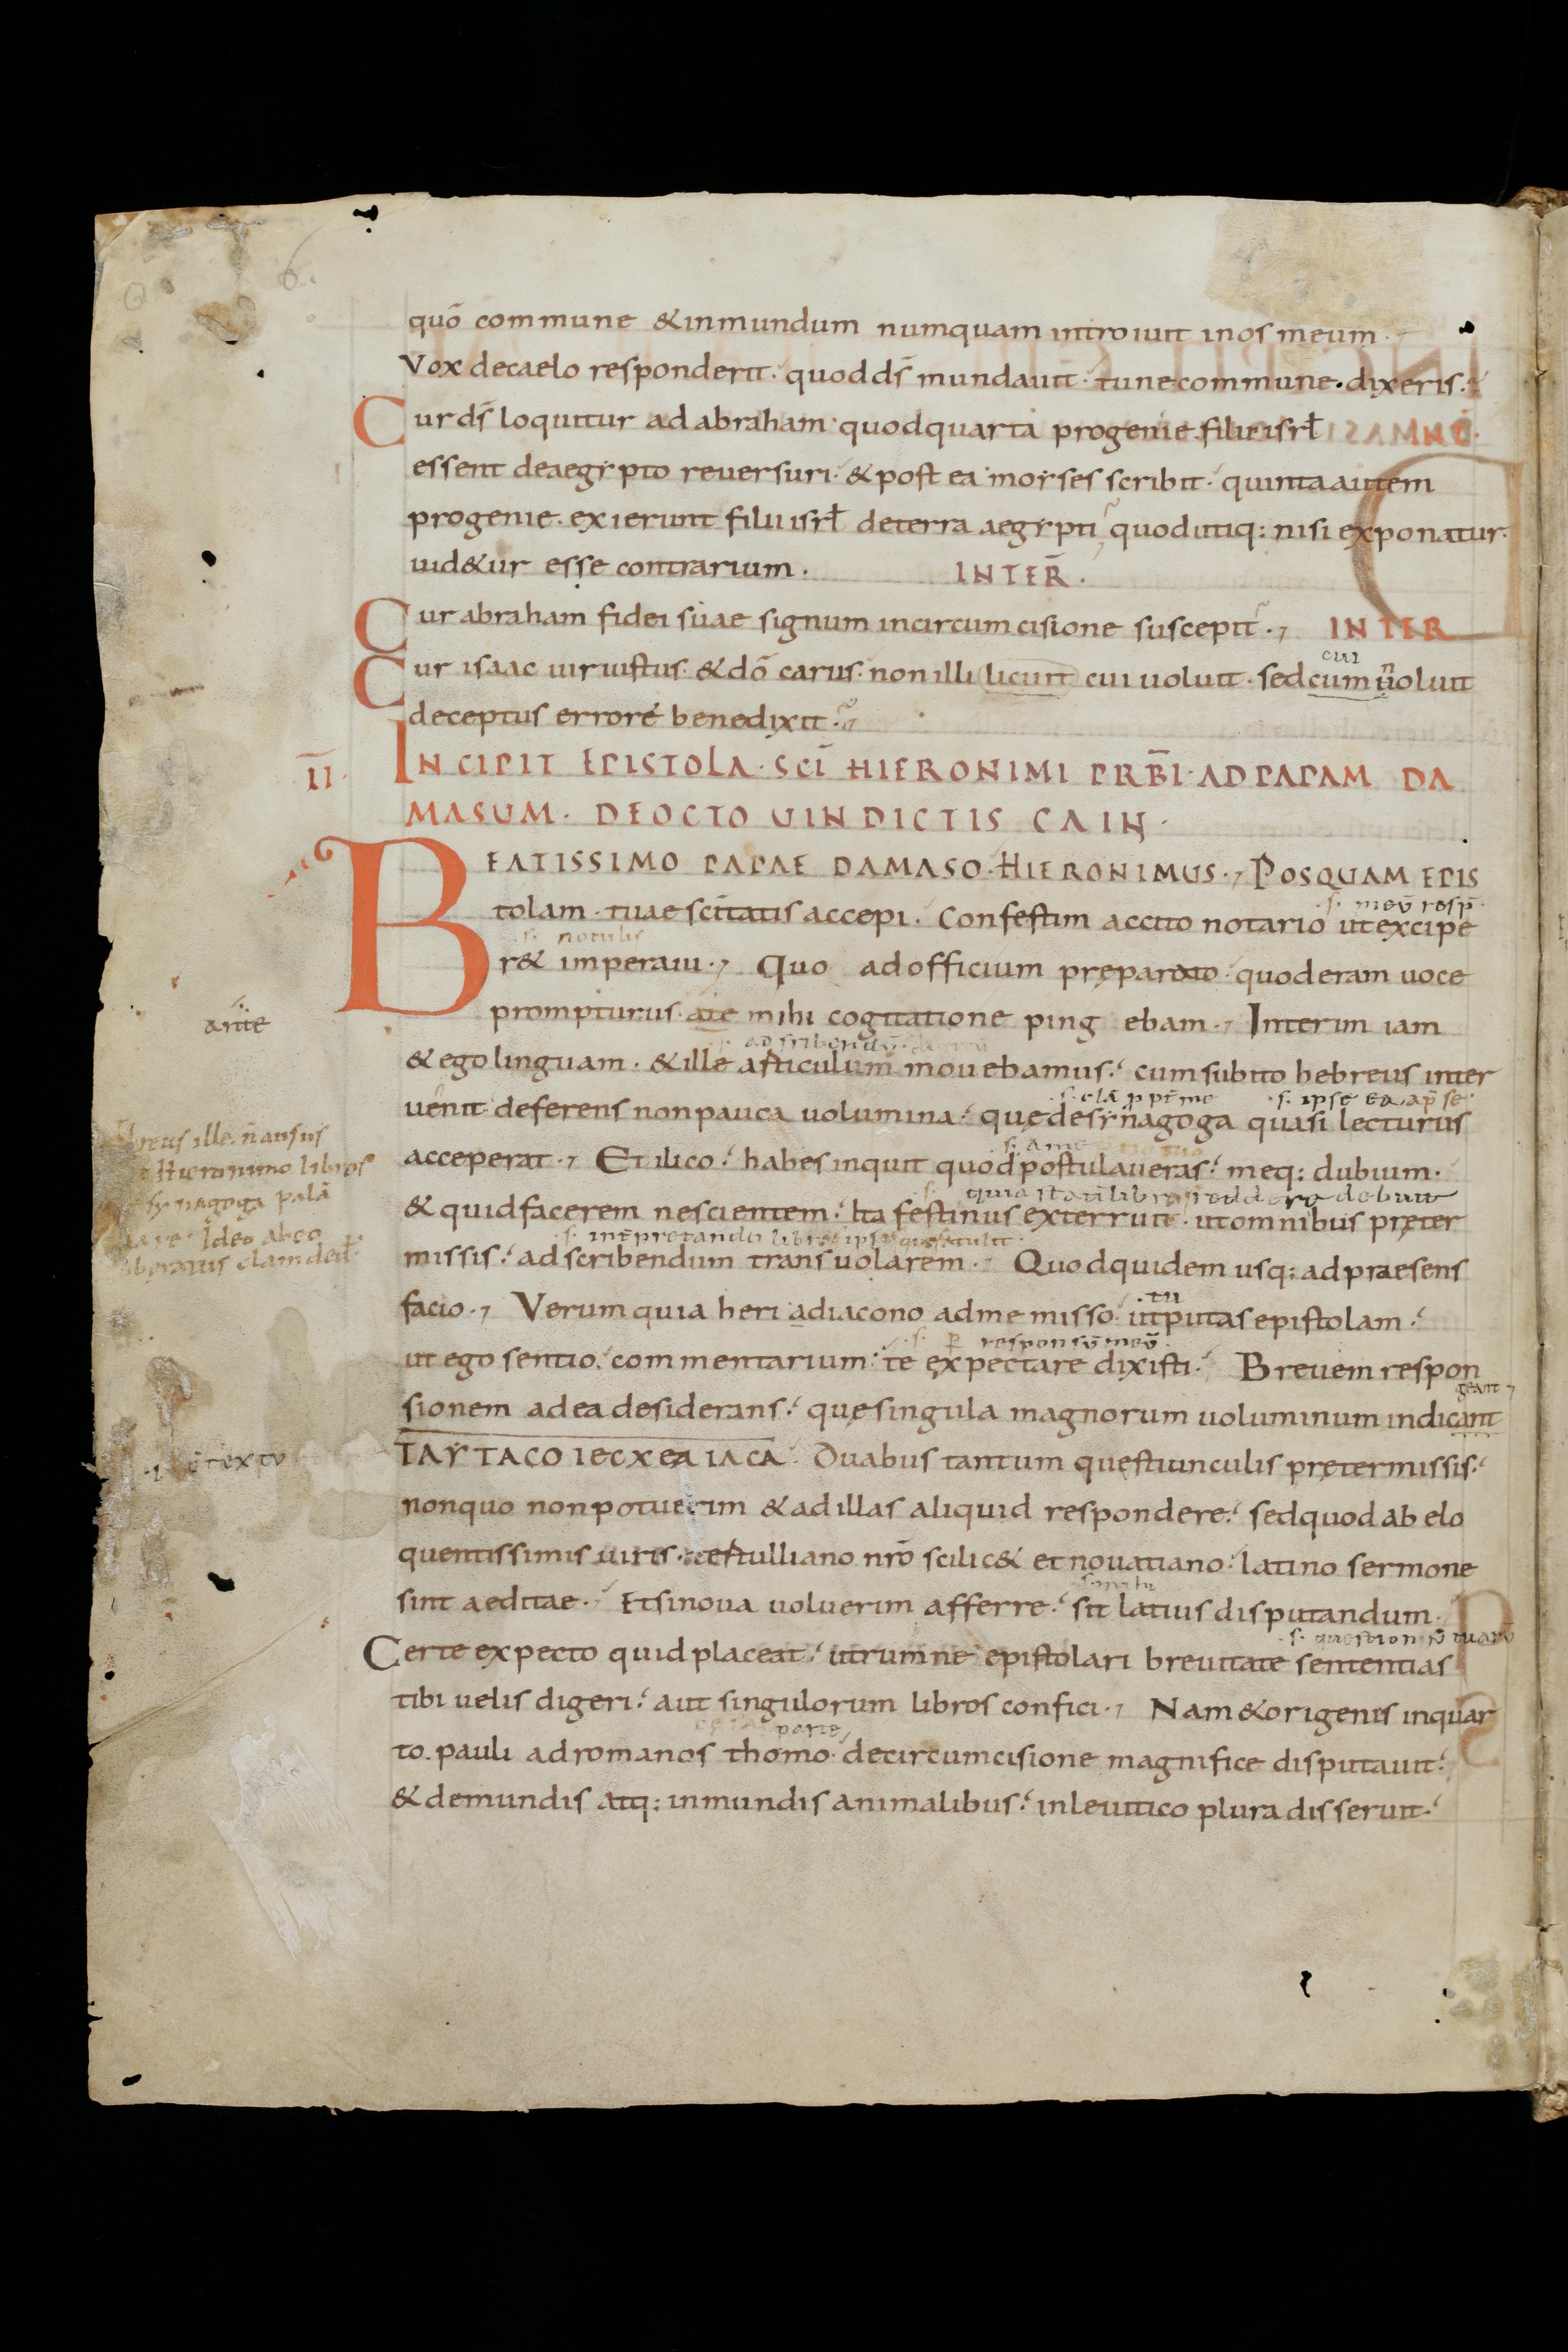 quō commune & inmundum numquam introiuit in os meum.
Vox de caelo responderit. quod d̄s mundauit. tu ne commune. dixeris.
Cur d̄s loquitur ad abraham. quod quarta progenie filii isrł
essent de aegypto reuersuri. & post ea moyses scribit. quinta autem
progenie. exierunt filii isrł de terra aegypti quod utiq: nisi exponatur.
uid&ur esse contrarium. INTER̄.
Cur abraham fidei suae signum in circumcisione suscepit. INTER
cui n
Cur isaac uir iustus. & dō carus. non illi licuit cui uoluit. sed cum uoluit
deceptus errore benedixit.
II. INCIPIT EPISTOLA. SCĪ HIERONIMI PRB̄I. AD PAPAM DA
MASUM. DE OCTO UINDICTIS CAIN.
BEATISSIMO PAPAE DAMASO. HIERONIMUS. POSQUAM EPIS
s. meū resp̄.
tolam. tuae scitatis accepi. Confestim accito notario ut excipe
s. notulis
r& imperaui. Quo ad officium pręparato. quod eram uoce
ante
prompturus. ate mihi cogitatione ping ebam. Interim iam
ad scribendū.
& ego linguam. & ille articulum mouebamus. cum subito hebreus inter
s. ipse ea, ap̄ se.
uenit. deferens non pauca uolumina. quę de synagoga quasi lecturus
s. a me
acceperat. Et ilico. habes inquit quod postulaueras. meq: dubium.
quia statī libros reddere debuit
& quid facerem nescientem. Ita festinus exterruit. ut omnibus pręter
s. int̄pretando libros ipsos quos tulit.
missis. ad scribendum transuolarem. Quod quidem usq: ad praesens
tu
facio. Verum quia heri a diacono ad me misso. ut putas epistolam.
s. responsū meū.
ut ego sentio. commentarium. te expectare dixisti. Breuem respon
geant
sionem ad ea desiderans. quę singula magnorum uoluminum indicant
TAYTACOIECXEAIACA. Duabus tantum quęstiunculis prętermissis.
non quo non potuerim & ad illas aliquid respondere. sed quod ab elo
quentissimis uiris. tertulliano nrō scilic& et nouatiano. latino sermone
sint aeditae. Et si noua uoluerim afferre. sit latius disputandum.
s. questionū tuarū
Certe expecto quid placeat. utrum ne epistolari breuitate sententias
tibi uelis digeri. aut singulorum libros confici. Nam & origenis in quar
parte
to. pauli ad romanos thomo. de circumcisione magnifice disputauit.
& de mundis atq: inmundis animalibus. in leuitico plura disseruit.
ille n̄ ausus
Hieronimo libros
synagoga palā
Ideo ab eo
clam ded̄